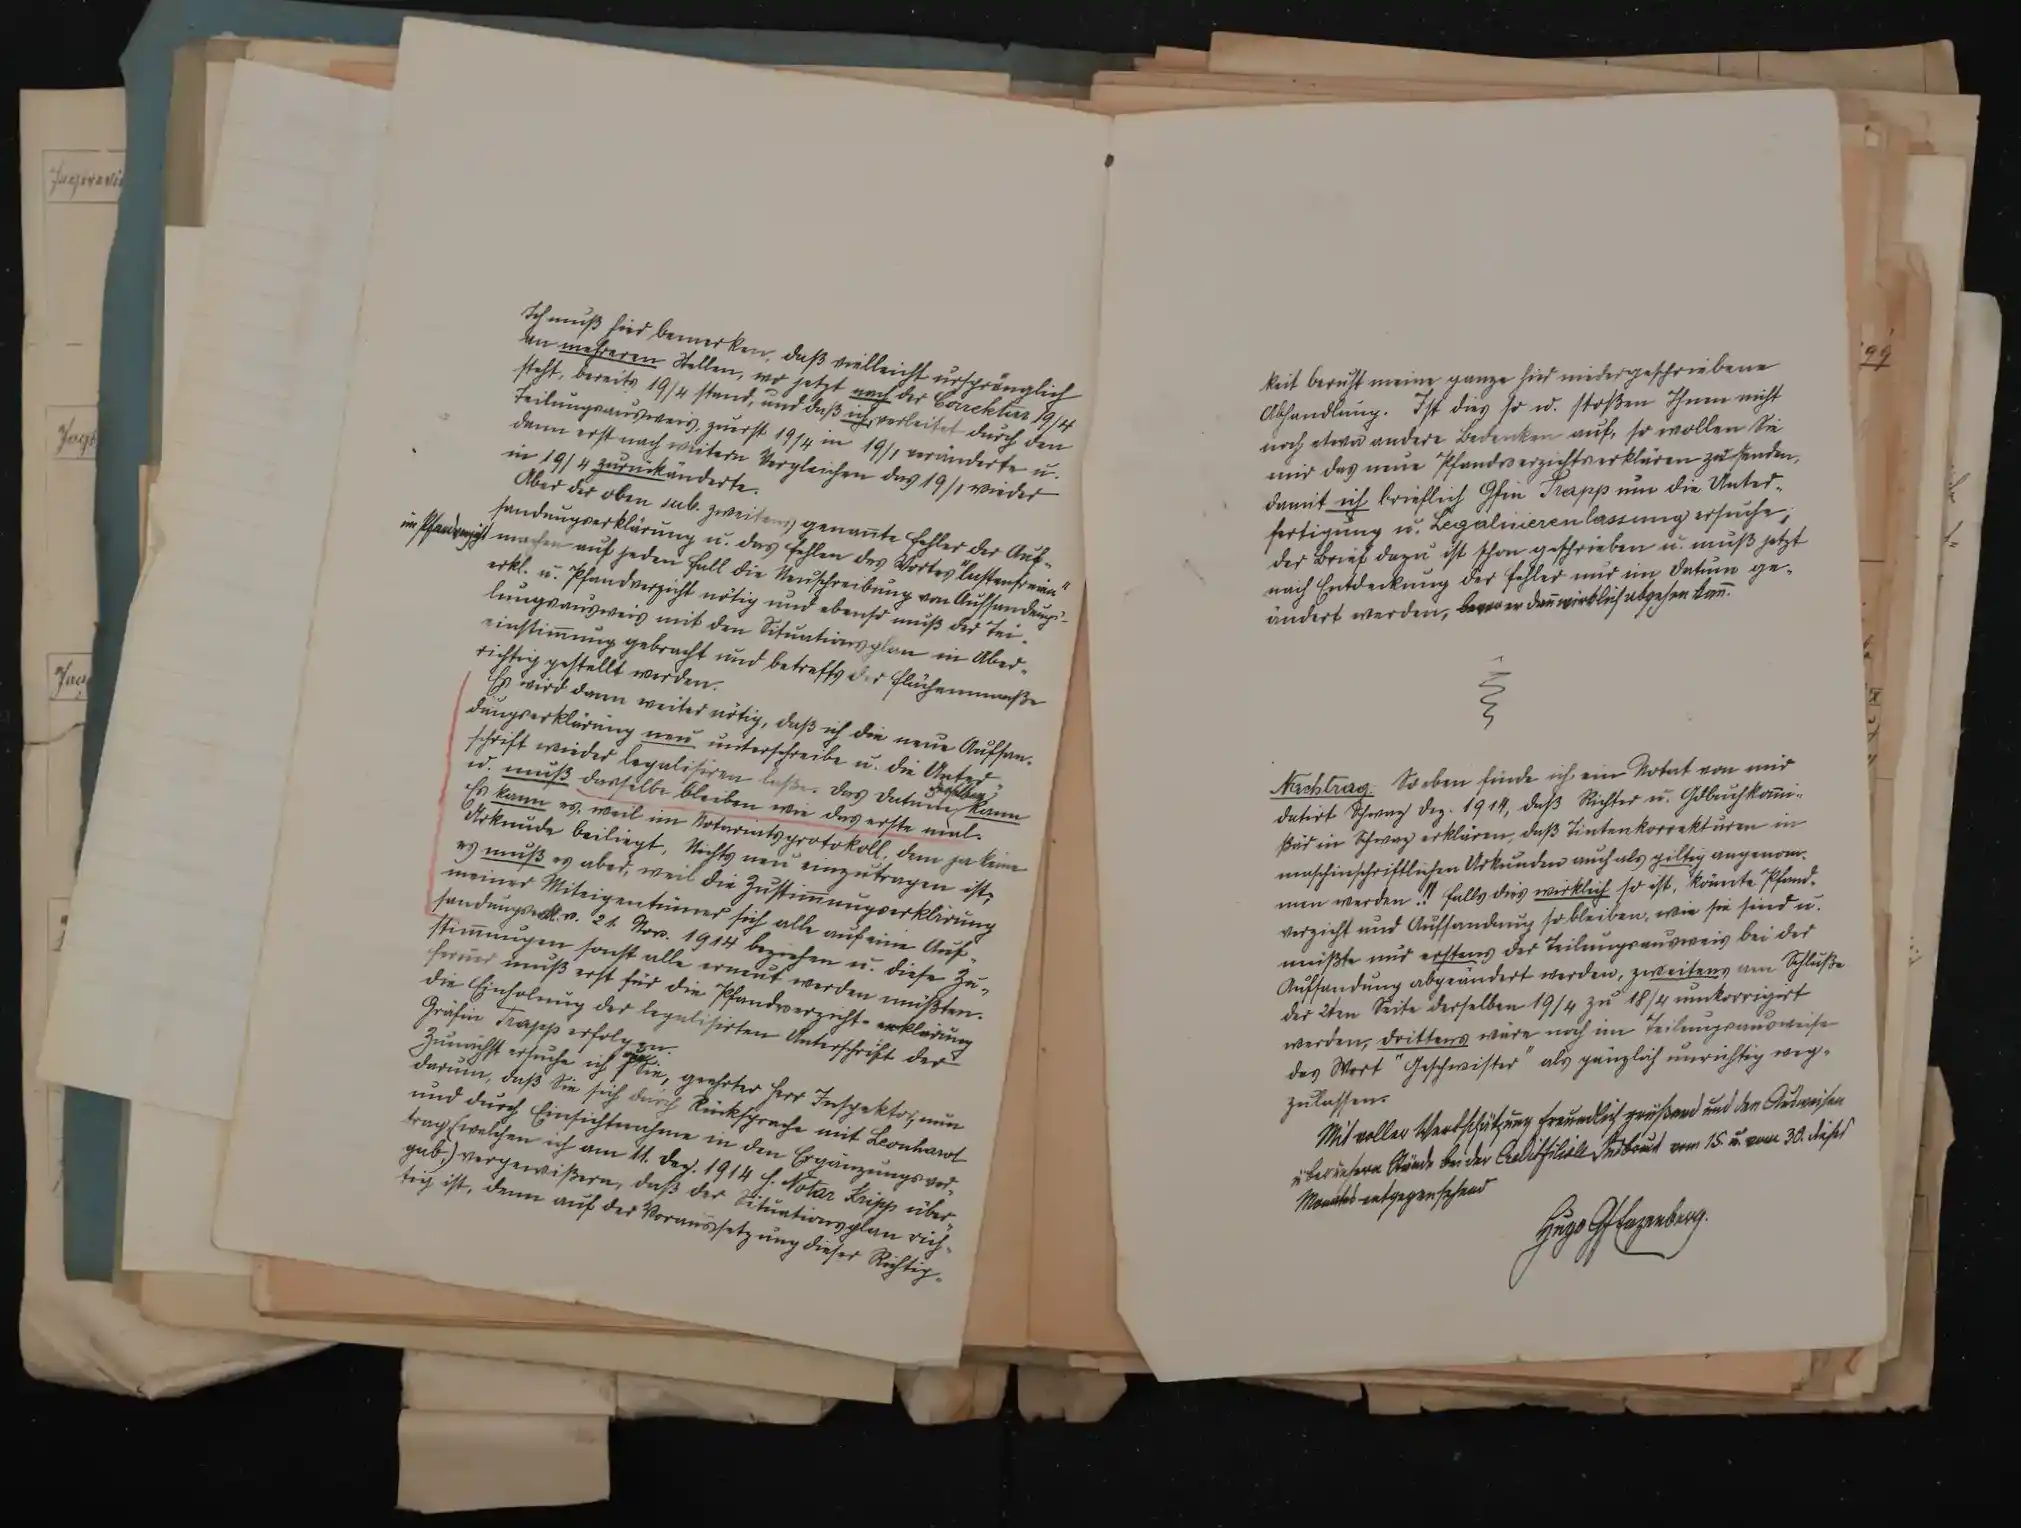 Ich muß hier bemerken, daß vielleicht ursprünglich
an mehreren Stellen, wo jetzt nach der Correktur 19/4
steht, bereits 19/4 stand, und daß ich, verleitet durch den
Teilungsausweis, zuerst 19/4 in 19/1 veränderte u.
dann erst nach weitern Vergleichen das 19/1 wieder
in 19/4 zurückänderte.
Aber der oben sub. zweitens genannte Fehler der Auf-
sandungserklärung u. das Fehlen des Wortes "lastenfreien"
im Pfandverzicht machen auf jeden Fall die Neuschreibung von Aufsandungs-
erkl. u. Pfandverzicht nötig und ebenso muß der Tei-
lungsausweis mit den Situationsplan in Über-
einstimmung gebracht und betreffs der Flächenmaaße
richtig gestellt werden.
Es wird dann weiter nötig, daß ich die neue Aufsan-
dungserklärung neu unterschreibe u. die Unter-
schrift wieder legalisiren laße. Das Datum derselben kann
u. muß dasselbe bleiben wie das erste mal.
Es kann es, weil im Notariatsprotokoll, dem ja keine
Urkunde beiliegt, Nichts neu einzutragen ist,
es muß es aber, weil die Zustimmungserklärung
meiner Miteigentümer sich alle auf eine Auf-
sandungserkl. v. 21. Nov. 1914 beziehen u. diese Zu-
stimmungen sonst alle erneut werden müßten.
Ferner muß erst für die Pfandverzicht-erklärung
die Einholung der legalisirten Unterschrift der
Gräfin Trapp erfolgen.
Zunächst ersuche ich Sie, geehrter Herr Inspektor, nun
darum, daß Sie sich durch Rücksprache mit Leonhard
und durch Einsichtnahme in den Ergänzungsver-
trag (welchen ich am 11. Dez. 1914 H. Notar Tripp über-
gab,) vergewißern, daß der Situationsplan rich-
tig ist, denn auf der Voraussetzung dieser Richtig-
keit beruht meine ganze hier niedergeschriebene
Abhandlung. Ist dies so u. stoßen Ihnen nicht
noch etwa andere Bedenken auf, so wollen Sie
mir das neue Pfandverzichtserklären zu senden,
damit ich brieflich Gfin Trapp um die Unter-
fertigung u. Legalisierenlassung ersuche;
der Brief dazu ist schon geschrieben u. muß jetzt
nach Entdeckung der Fehler nur im Datum ge-
ändert werden, bevor er dann wirklich abgehen kann.
Nachtrag. Soeben finde ich ein Notat von mir
datirt Schwaz Dez. 1914, daß Richter u. Gdbuchkommi-
ßär in Schwaz erklären, daß Tintenkorrekturen in
maschinschriftlichen Urkunden auch als giltig angenom-
men werden!! Falls dies wirklich so ist, könnte Pfand-
verzicht und Aufsandung so bleiben, wie sie sind u.
müßte nur erstens der Teilungsausweis bei der
Aufsandung abgeändert werden, zweitens am Schluße
der 2ten Seite derselben 19/4 zu 18/4 umkorrigirt
werden, drittens wäre noch im Teilungsausweise
das Wort "Geschwister" als gänzlich unrichtig weg-
zulassen.
Mit voller Wertschätzung freundlich grüßend und den Ausweisen
über unsern Stände bei der Creditfiliale Insbruck vom 15. u. vom 30. dieses
Monates entgegensehend
Hugo Gf Enzenberg.
99